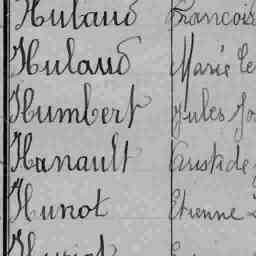 Hulaud François
Hulaud Marie
Humbert Jules
Hanault Aristide
Hunot Etienne